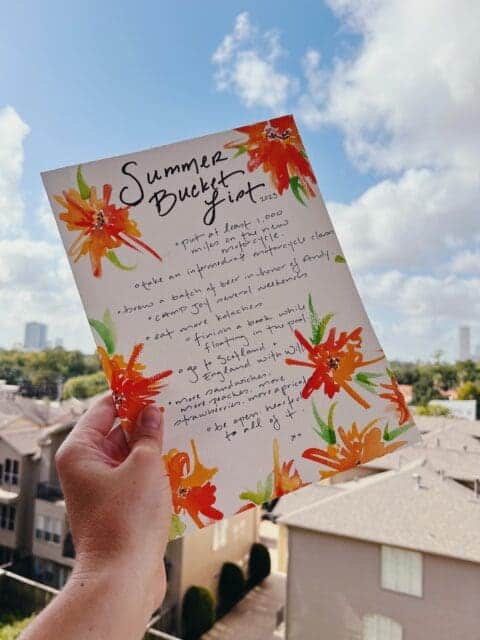 Summer
Bucket
List 2023
• put at least 1,000
miles on the new
motorcycle.
• take an intermediate motorcycle class
• brew a batch of beer in honor of Andy.
• camp Joy several weekends
• eat more kolaches
• finish a book while
floating in the pool
• go to Scotland +
England with Will
• more sandwiches,
more peaches, more
strawberries, more apricots
• be open, hearted
to all of it.
xo